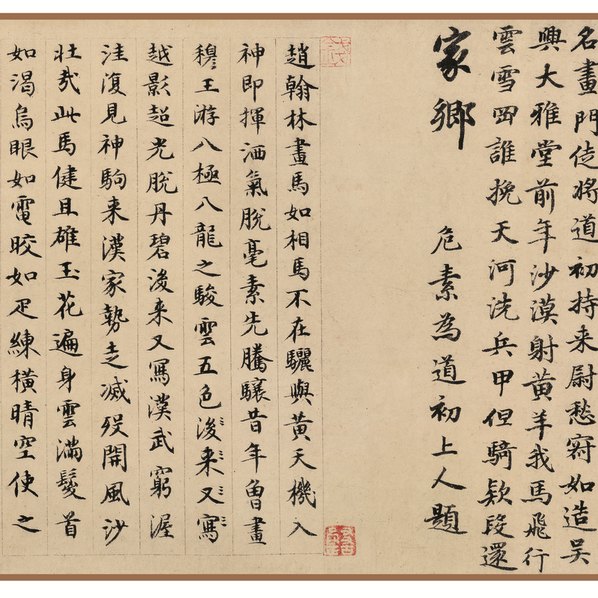 名畫門徒將道初持来慰愁寂如造吴
興大雅堂前年沙漠射黄羊我馬飛行
雲雪岡誰挽天河洗兵甲但騎欵段還
家鄉
危素為道初上人題
趙翰林畫馬如相馬不在驪與黄天機入
神即揮洒氣脫毫素先騰驤昔年曾畫
穆王游八極八龍之駿雲五色後来又寫
越影超光脫丹碧後来又寫漢武窮渥
洼復見神駒来漢家勢走滅歿開風沙
壮哉此馬健且雄玉花遍身雲滿鬉首
如渴烏眼如電皎如疋練橫晴空使之